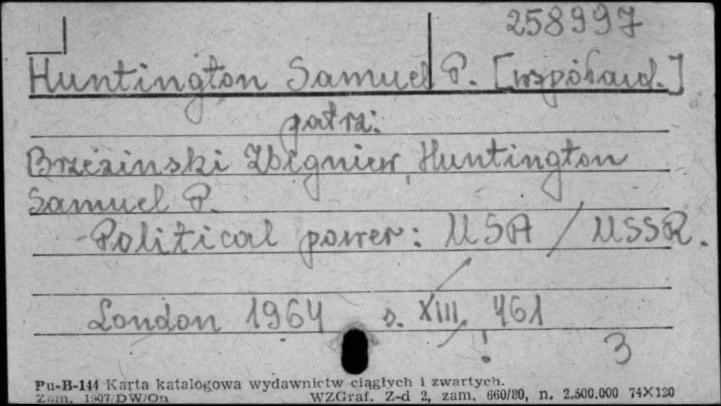 258997
Huntington Samuel P. [współaud.]
patrz:
Brzeziński Zbigniew, Huntington
Samuel P.
Political power: USA / USSR.
London 1964 s. XIII, 461
3
Pu-B-144 Karta katalogowa wydawnictw ciągłych i zwartych.
Zam. 1907/DW/On WZGraf. Z-d 2, zam. 660/80, n. 2.500.000 74X120